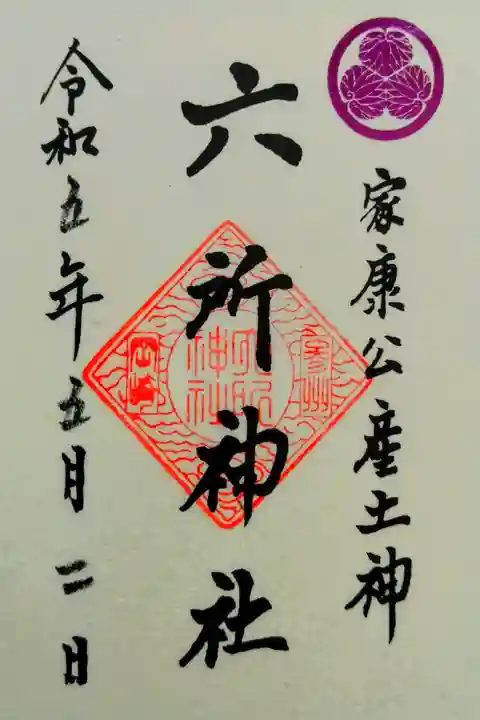 家康公産土神
六所神社
令和五年五月二日
参州
六所
神社